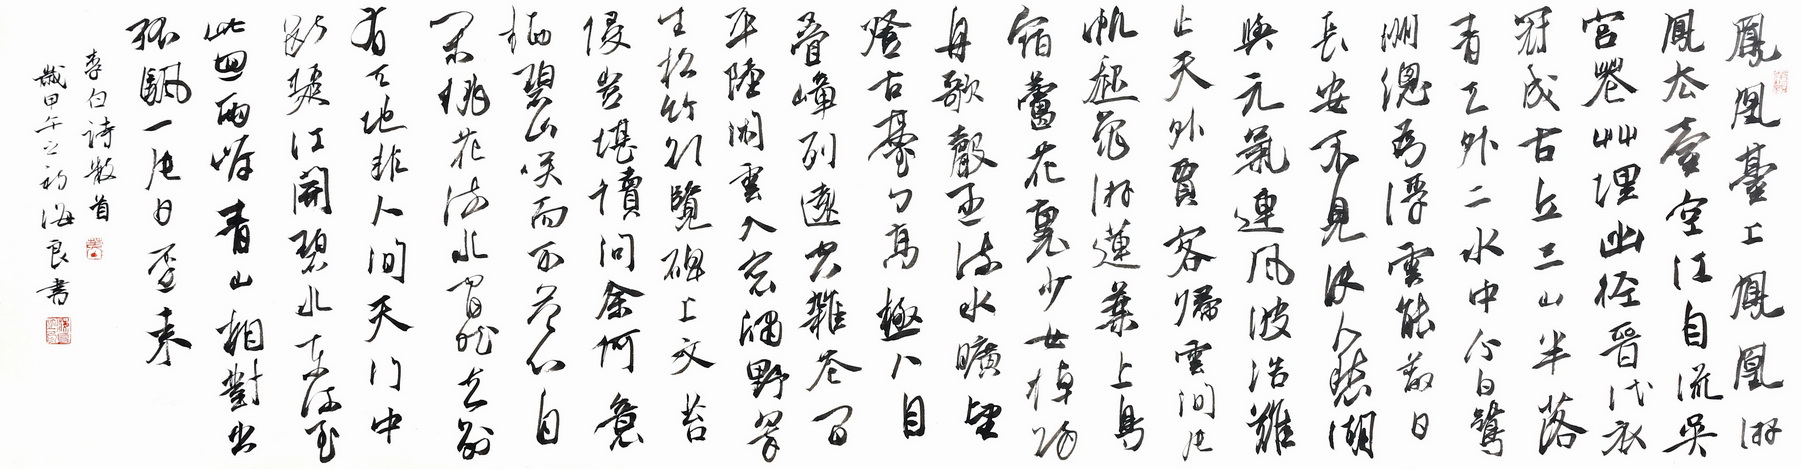 鳳凰臺上鳳凰游
鳳去臺空江自流吳
宮花艸埋幽徑晉代衣
冠成古丘三山半落
青天外二水中分白鷺
洲總為浮雲能蔽日
長安不見使人愁湖
與元氣連風波浩難
止天外賈客歸雲間片
帆起龜游蓮葉上鳥
宿蘆花裏少女棹歸
舟歌聲逐流水曠望
登古臺々高極人目
疊嶂列遠空雜花間
平陸閑雲入窗牖野翠
生松竹欲覽碑上文苔
侵豈堪讀問余何意
棲碧山笑而不答心自
閑桃花流水窅然去別
有天地非人間天門中
斷楚江開碧水東流至
此迴兩岸青山相對出
孤帆一片日邊來
李白詩數首
歲甲午之初海良書